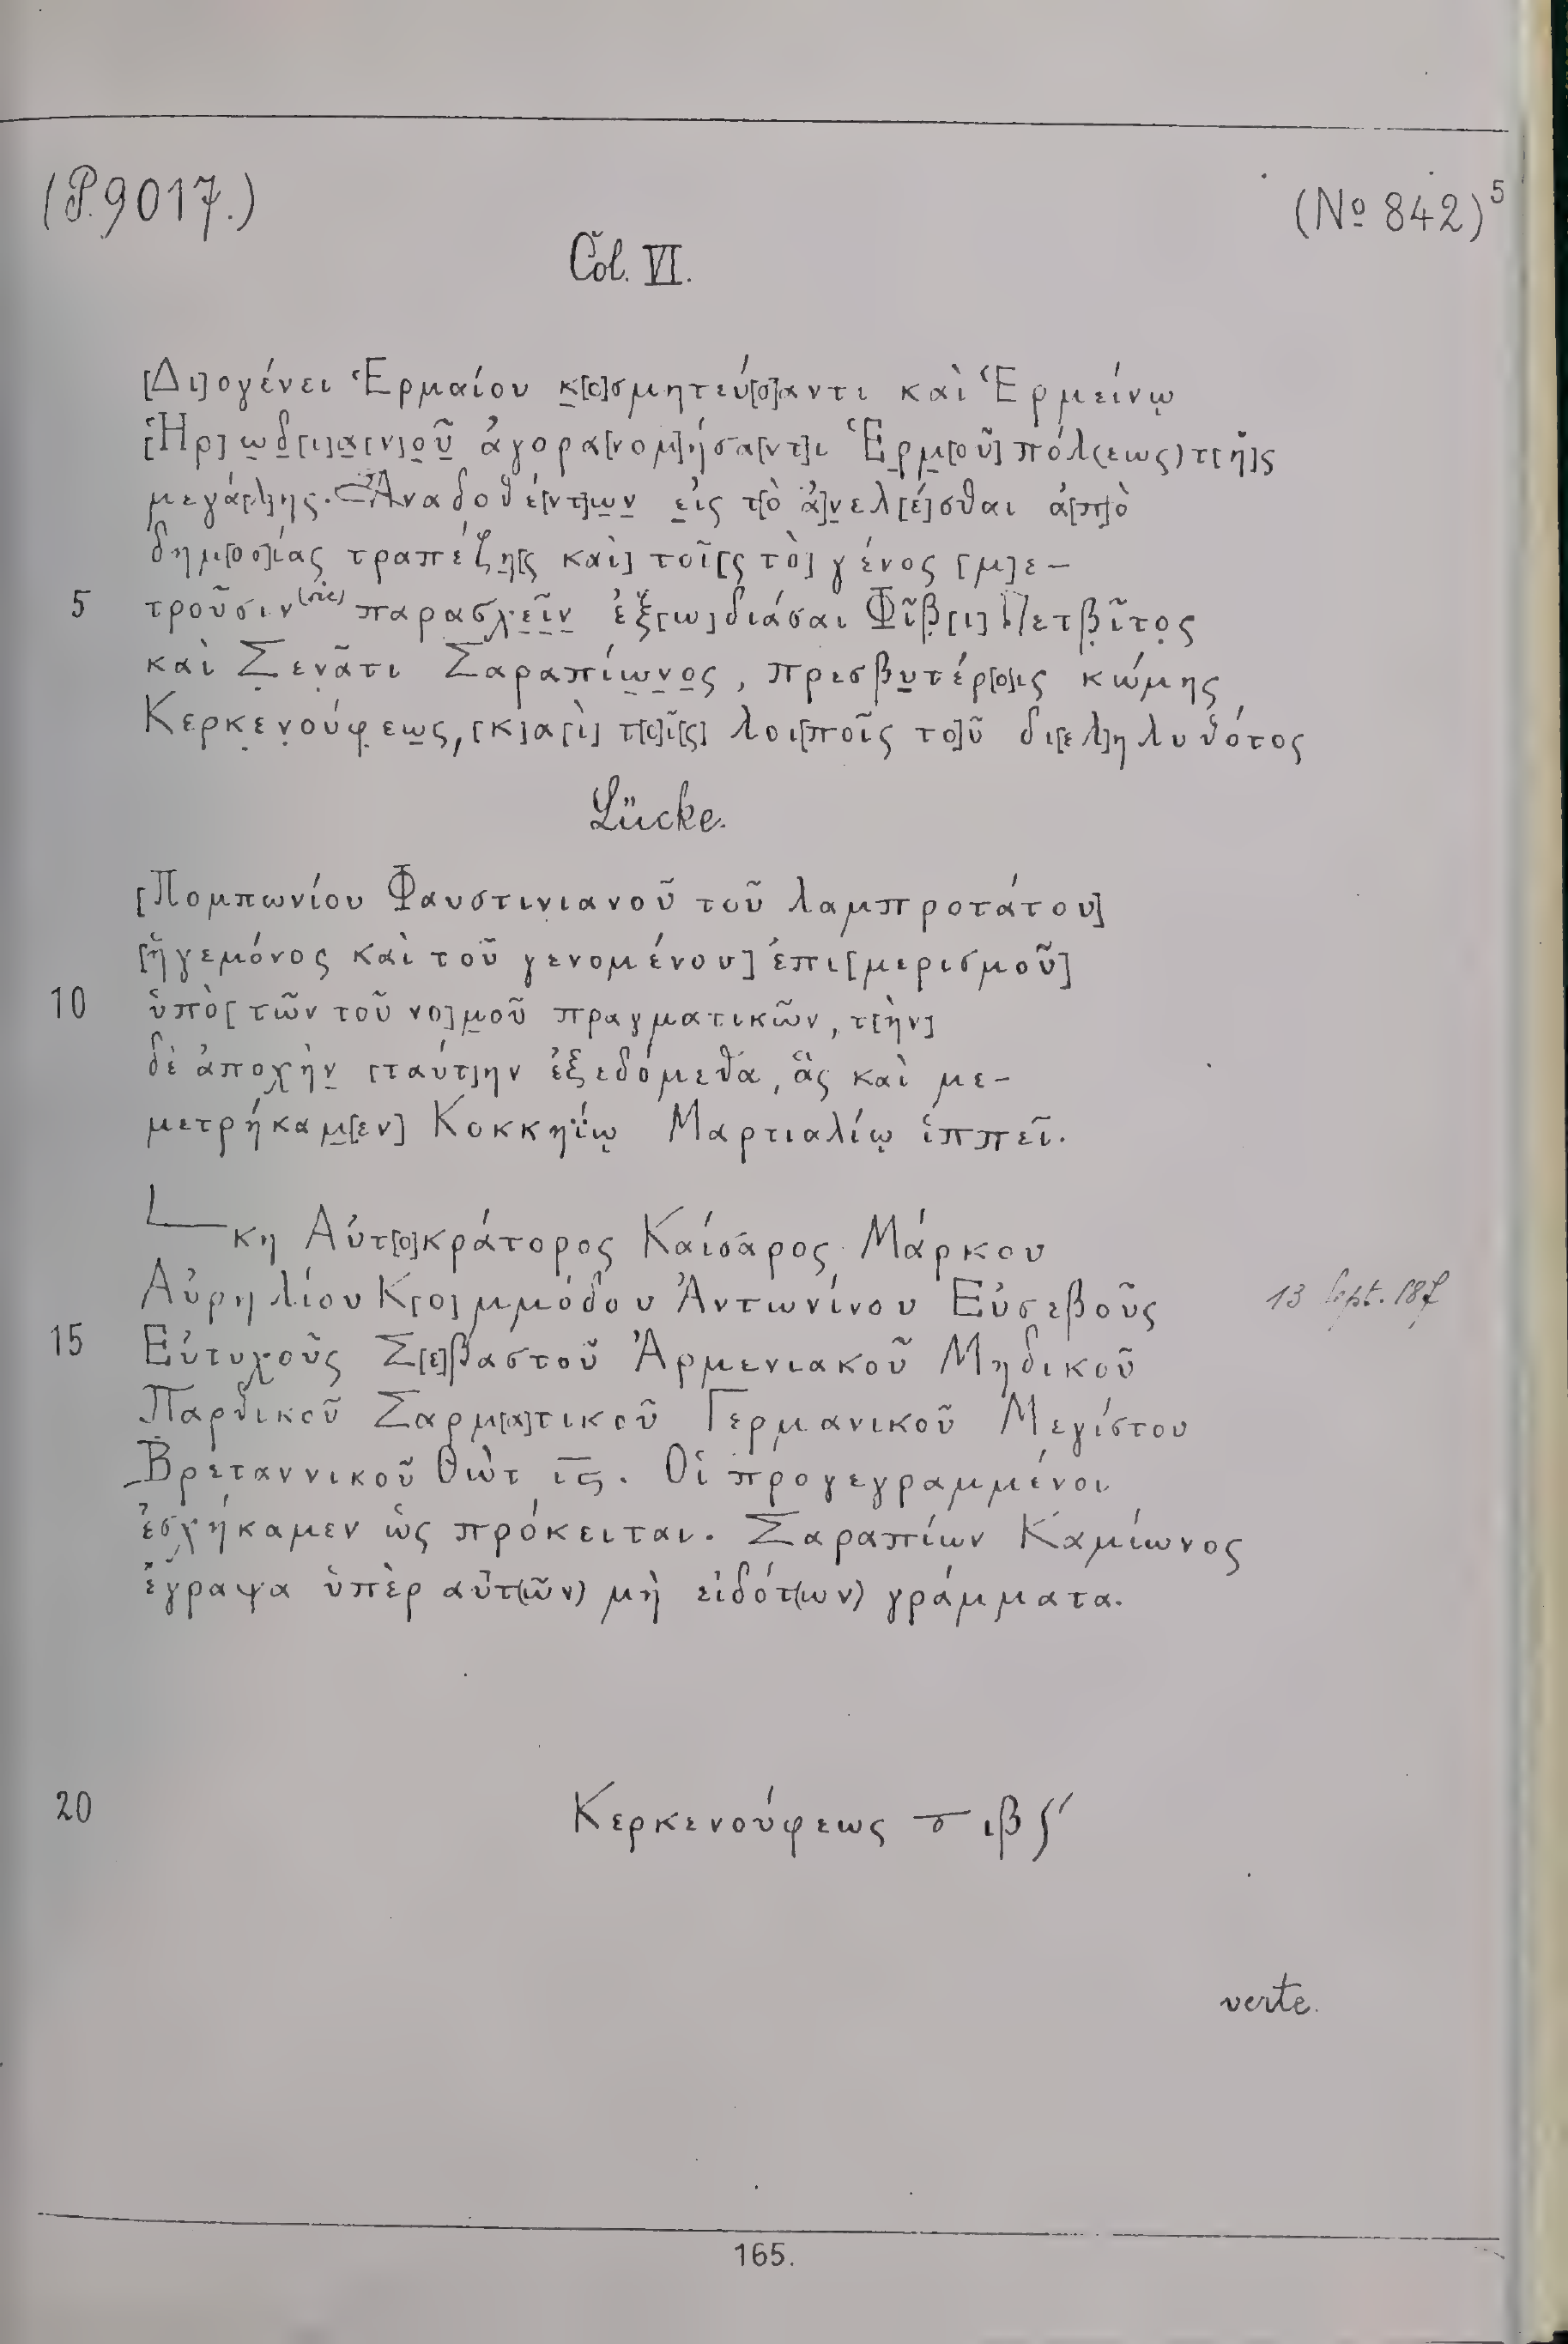 (P. 9017.)
(No 842)5
Col. VI.
[Δι]ογένει Ἑρμαίου κ[ο]σμητεύ[σ]αντι καὶ Ἑρμείνῳ
[Ἡρ]ωδ[ι]α[ν]οῦ ἀγορα[νομ]ήσα[ντ]ι Ἑρμ[οῦ] πόλ(εως) τ[ῆ]ς
μεγά[λ]ης. Ἀναδοθέ[ντ]ων εἰς τ[ὸ ἀ]νελ[έ]σθαι ἀ[π]ὸ
δημ[οσ]ίας τραπέζη[ς καὶ] τοῖ[ς τὸ] γένος [μ]ε-
5 τροῦσιν (sic) παρασχεῖν ἐξ[ω]διάσαι Φῖβ[ι] Πετβῖτος
καὶ Σενᾶτι Σαραπίωνος, πρεσβυτέρ[ο]ις κώμης
Κερκενούφεως, [κ]α[ὶ] τ[ο]ῖ[ς] λοι[ποῖς το]ῦ δι[ελ]ηλυθότος
Lücke.
[Πομπωνίου Φαυστινιανοῦ τοῦ λαμπροτάτου]
[ἡγεμόνος καὶ τοῦ γενομένου] ἐπι[μερισμοῦ]
10 ὑπὸ [τῶν τοῦ νο]μοῦ πραγματικῶν, τ[ὴν]
δὲ ἀποχὴν [ταύτ]ην ἐξεδόμεθα, ἃς καὶ με-
μετρήκαμ[εν] Κοκκηΐῳ Μαρτιαλίῳ ἱππεῖ.
L κη Αὐτ[ο]κράτορος Καίσαρος Μάρκου
Αὐρηλίου Κ[ο]μμόδου Ἀντωνίνου Εὐσεβοῦς
13 Sept. 187
15 Εὐτυχοῦς Σ[ε]βαστοῦ Ἀρμενιακοῦ Μηδικοῦ
Παρθικοῦ Σαρμ[α]τικοῦ Γερμανικοῦ Μεγίστου
Βρεταννικοῦ Θὼτ ις. Οἱ προγεγραμμένοι
ἐσχήκαμεν ὡς πρόκειται. Σαραπίων Καμίωνος
ἔγραψα ὑπὲρ αὐτ(ῶν) μὴ εἰδότ(ων) γράμματα.
20 Κερκενούφεως ιβ
verte.
165.